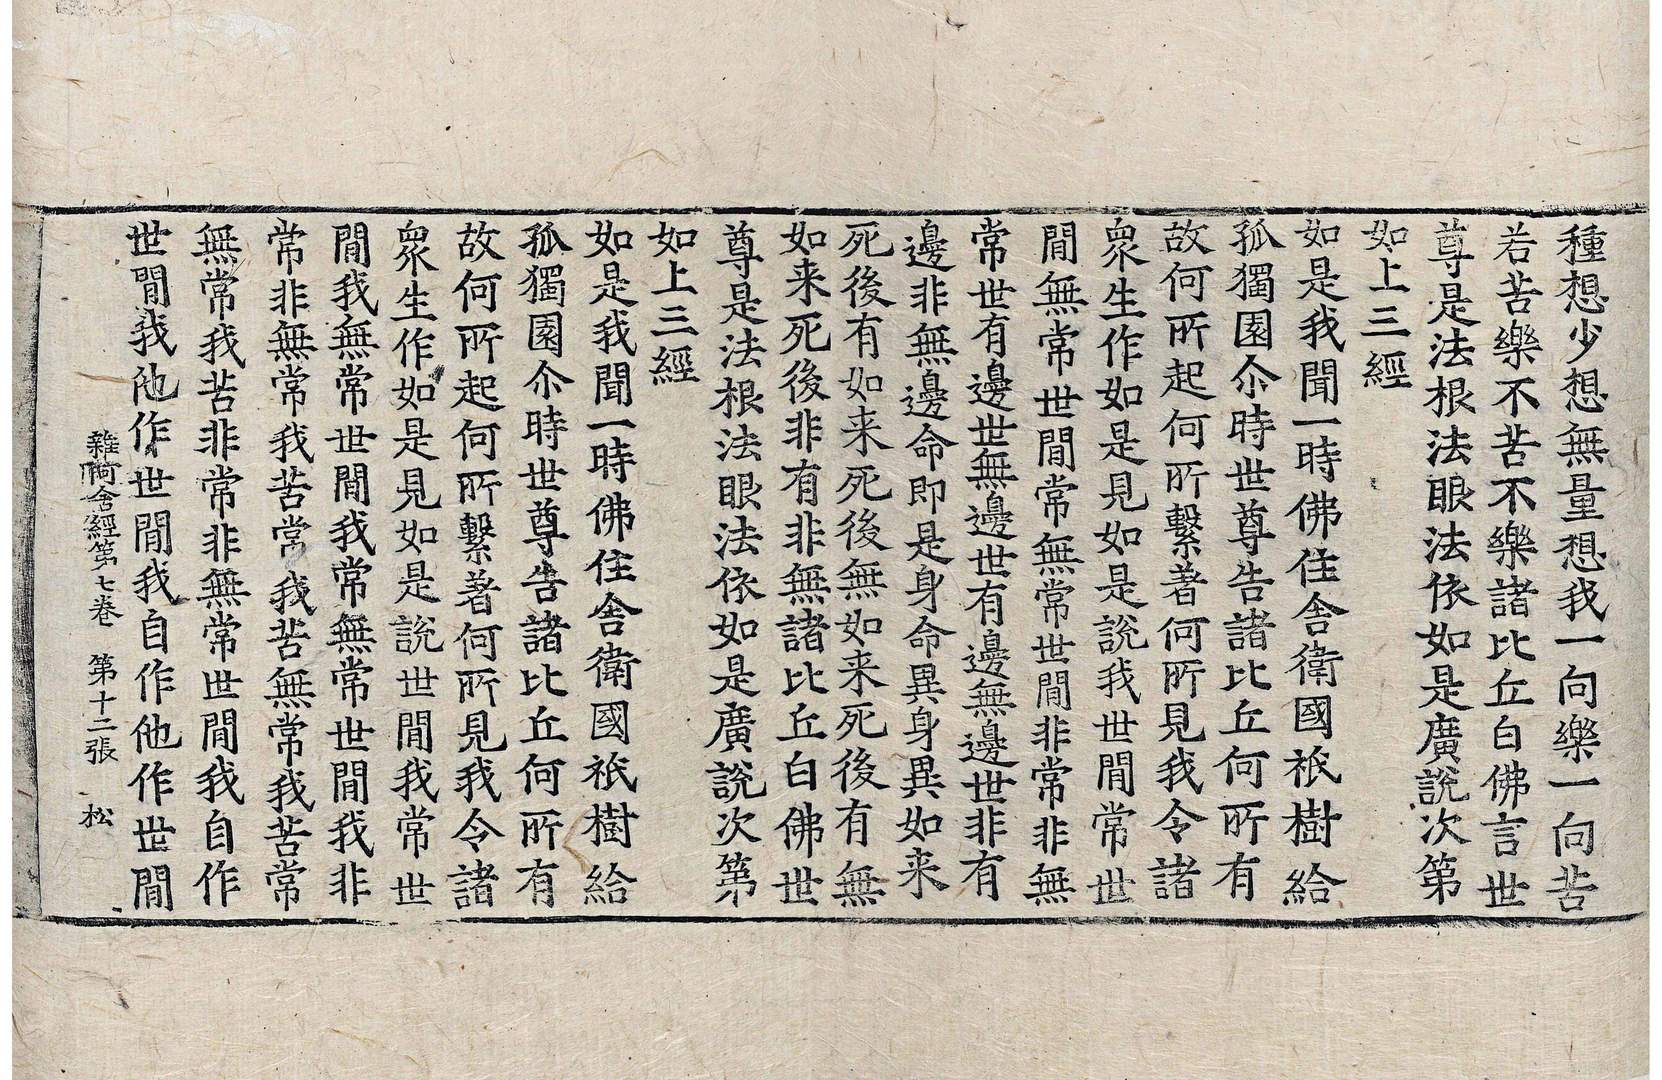 種想少想無量想我一向樂一向苦
若苦樂不苦不樂諸比丘白佛言世
尊是法根法眼法依如是廣說次第
如上三經
如是我聞一時佛住舍衛國祇樹給
孤獨園尒時世尊告諸比丘何所有
故何所起何所繫著何所見我令諸
衆生作如是見如是說我世閒常世
閒無常世閒常無常世閒非常非無
常世有邊世無邊世有邊無邊世非有
邊非無邊命即是身命異身異如来
死後有如来死後無如来死後有無
如来死後非有非無諸比丘白佛世
尊是法根法眼法依如是廣說次第
如上三經
如是我聞一時佛住舍衛國祇樹給
孤獨園尒時世尊告諸比丘何所有
故何所起何所繫著何所見我令諸
衆生作如是見如是說世閒我常世
閒我無常世閒我常無常世閒我非
常非無常我苦常我苦無常我苦常
無常我苦非常非無常世閒我自作
世閒我他作世閒我自作他作世閒
雜阿含經第七卷 第十二張 松